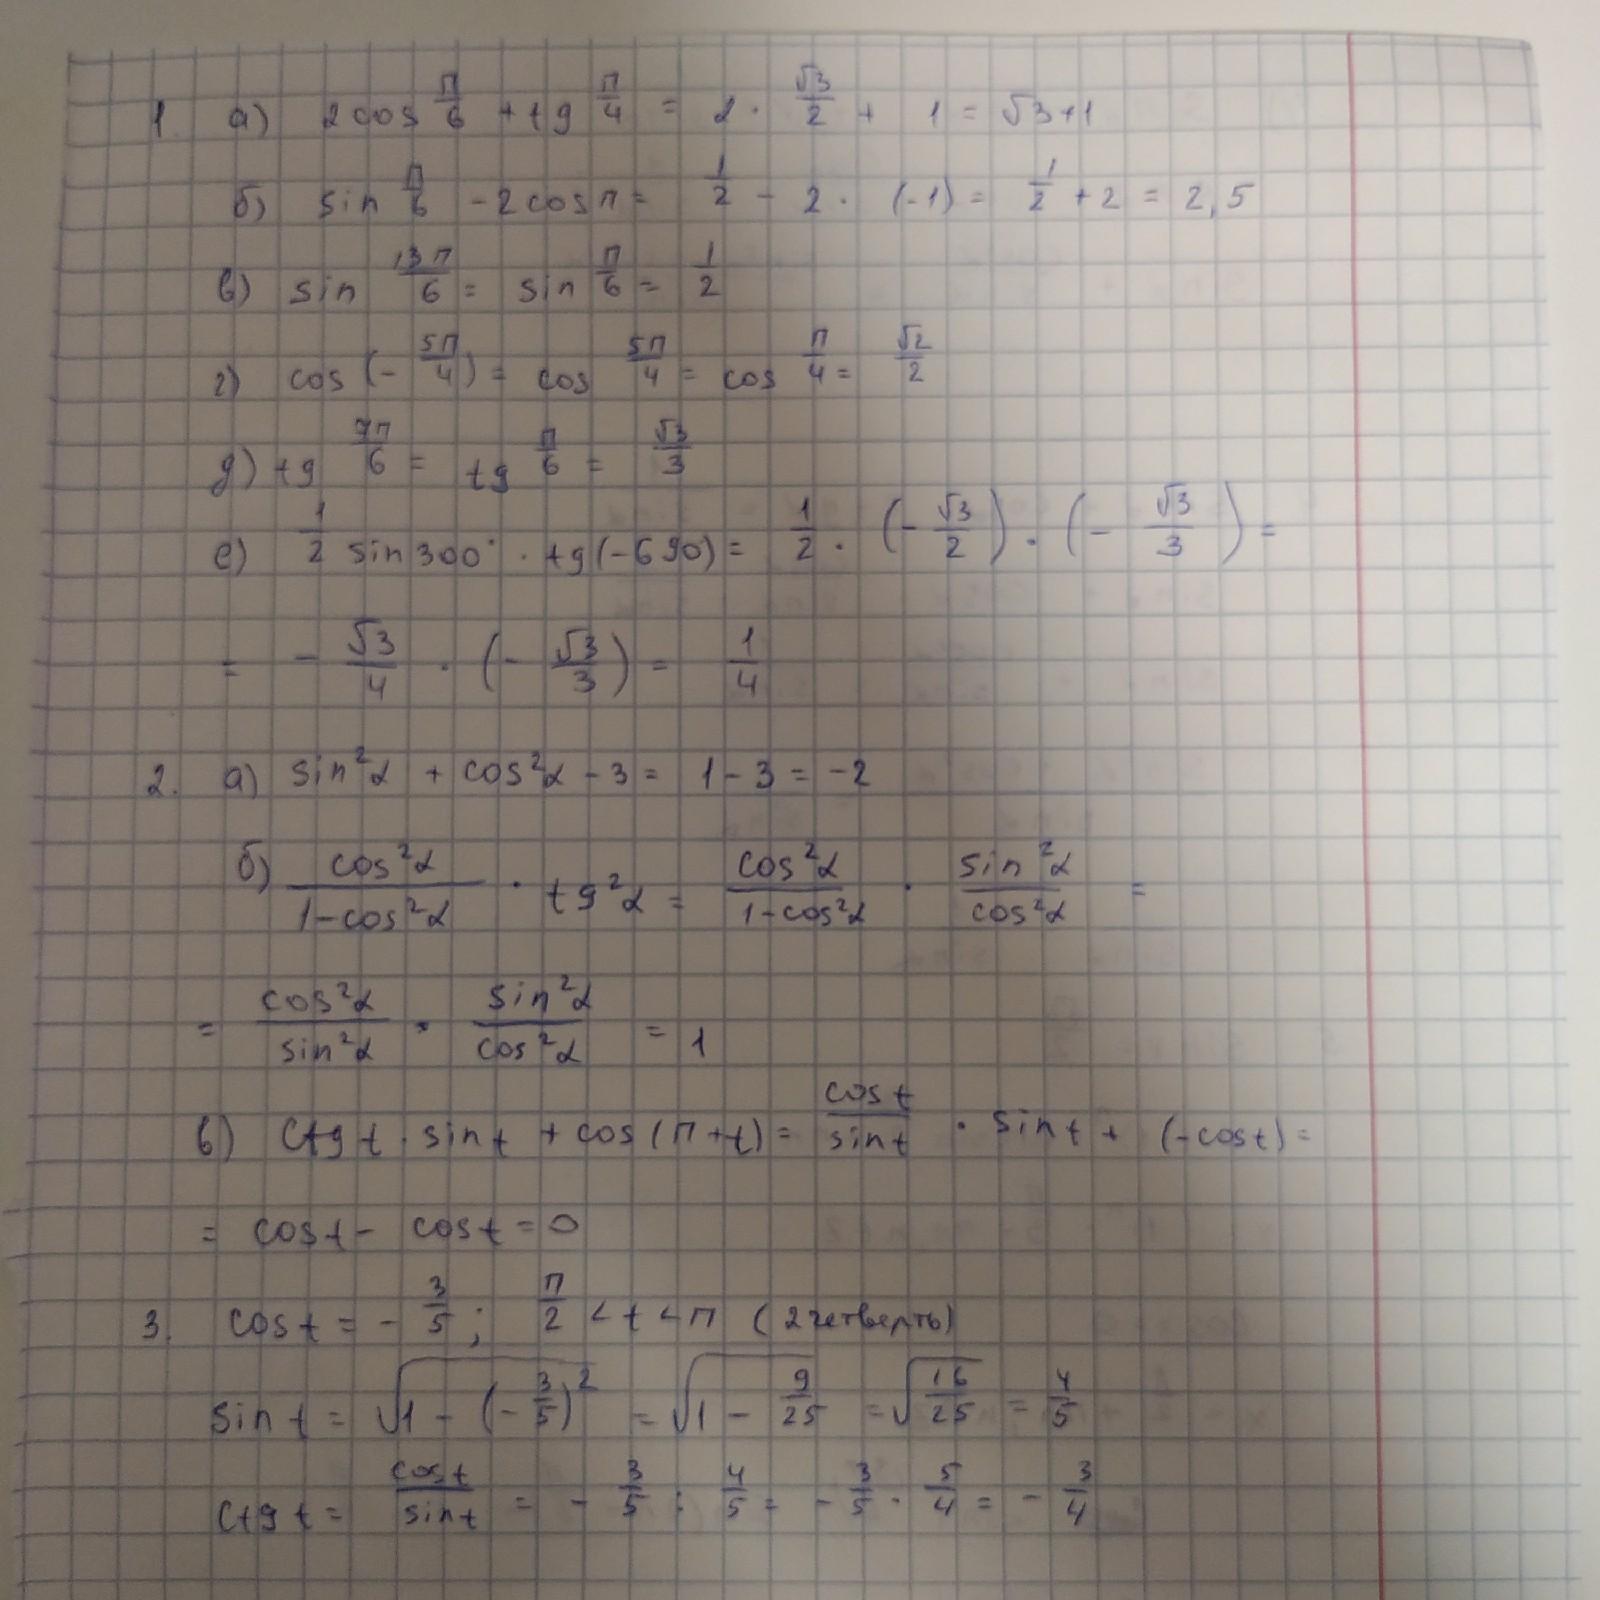 1 а) 2cos π/6 + tg π/4 = 2 · √3/2 + 1 = √3+1
б) sin π/6 - 2cosπ = 1/2 - 2 · (-1) = 1/2 + 2 = 2,5
в) sin 13π/6 = sin π/6 = 1/2
г) cos (- 5π/4) = cos 5π/4 = cos π/4 = √2/2
д) tg 7π/6 = tg π/6 = √3/3
е) 1/2 sin 300° · tg(-690) = 1/2 · (- √3/2) · (- √3/3) =
= - √3/4 · (- √3/3) = 1/4
2. а) sin²α + cos²α - 3 = 1 - 3 = -2
б) cos²α/(1-cos²α) · tg²α = cos²α/(1-cos²α) · sin²α/cos²α =
= cos²α/sin²α · sin²α/cos²α = 1
в) ctg t · sin t + cos(π+t) = cos t/sin t · sin t + (-cos t) =
= cos t - cos t = 0
3. cos t = - 3/5 ; π/2 < t < π (2 четверть)
sin t = √(1 - (- 3/5)²) = √(1 - 9/25) = √(16/25) = 4/5
ctg t = cos t/sin t = - 3/5 : 4/5 = - 3/5 · 5/4 = - 3/4